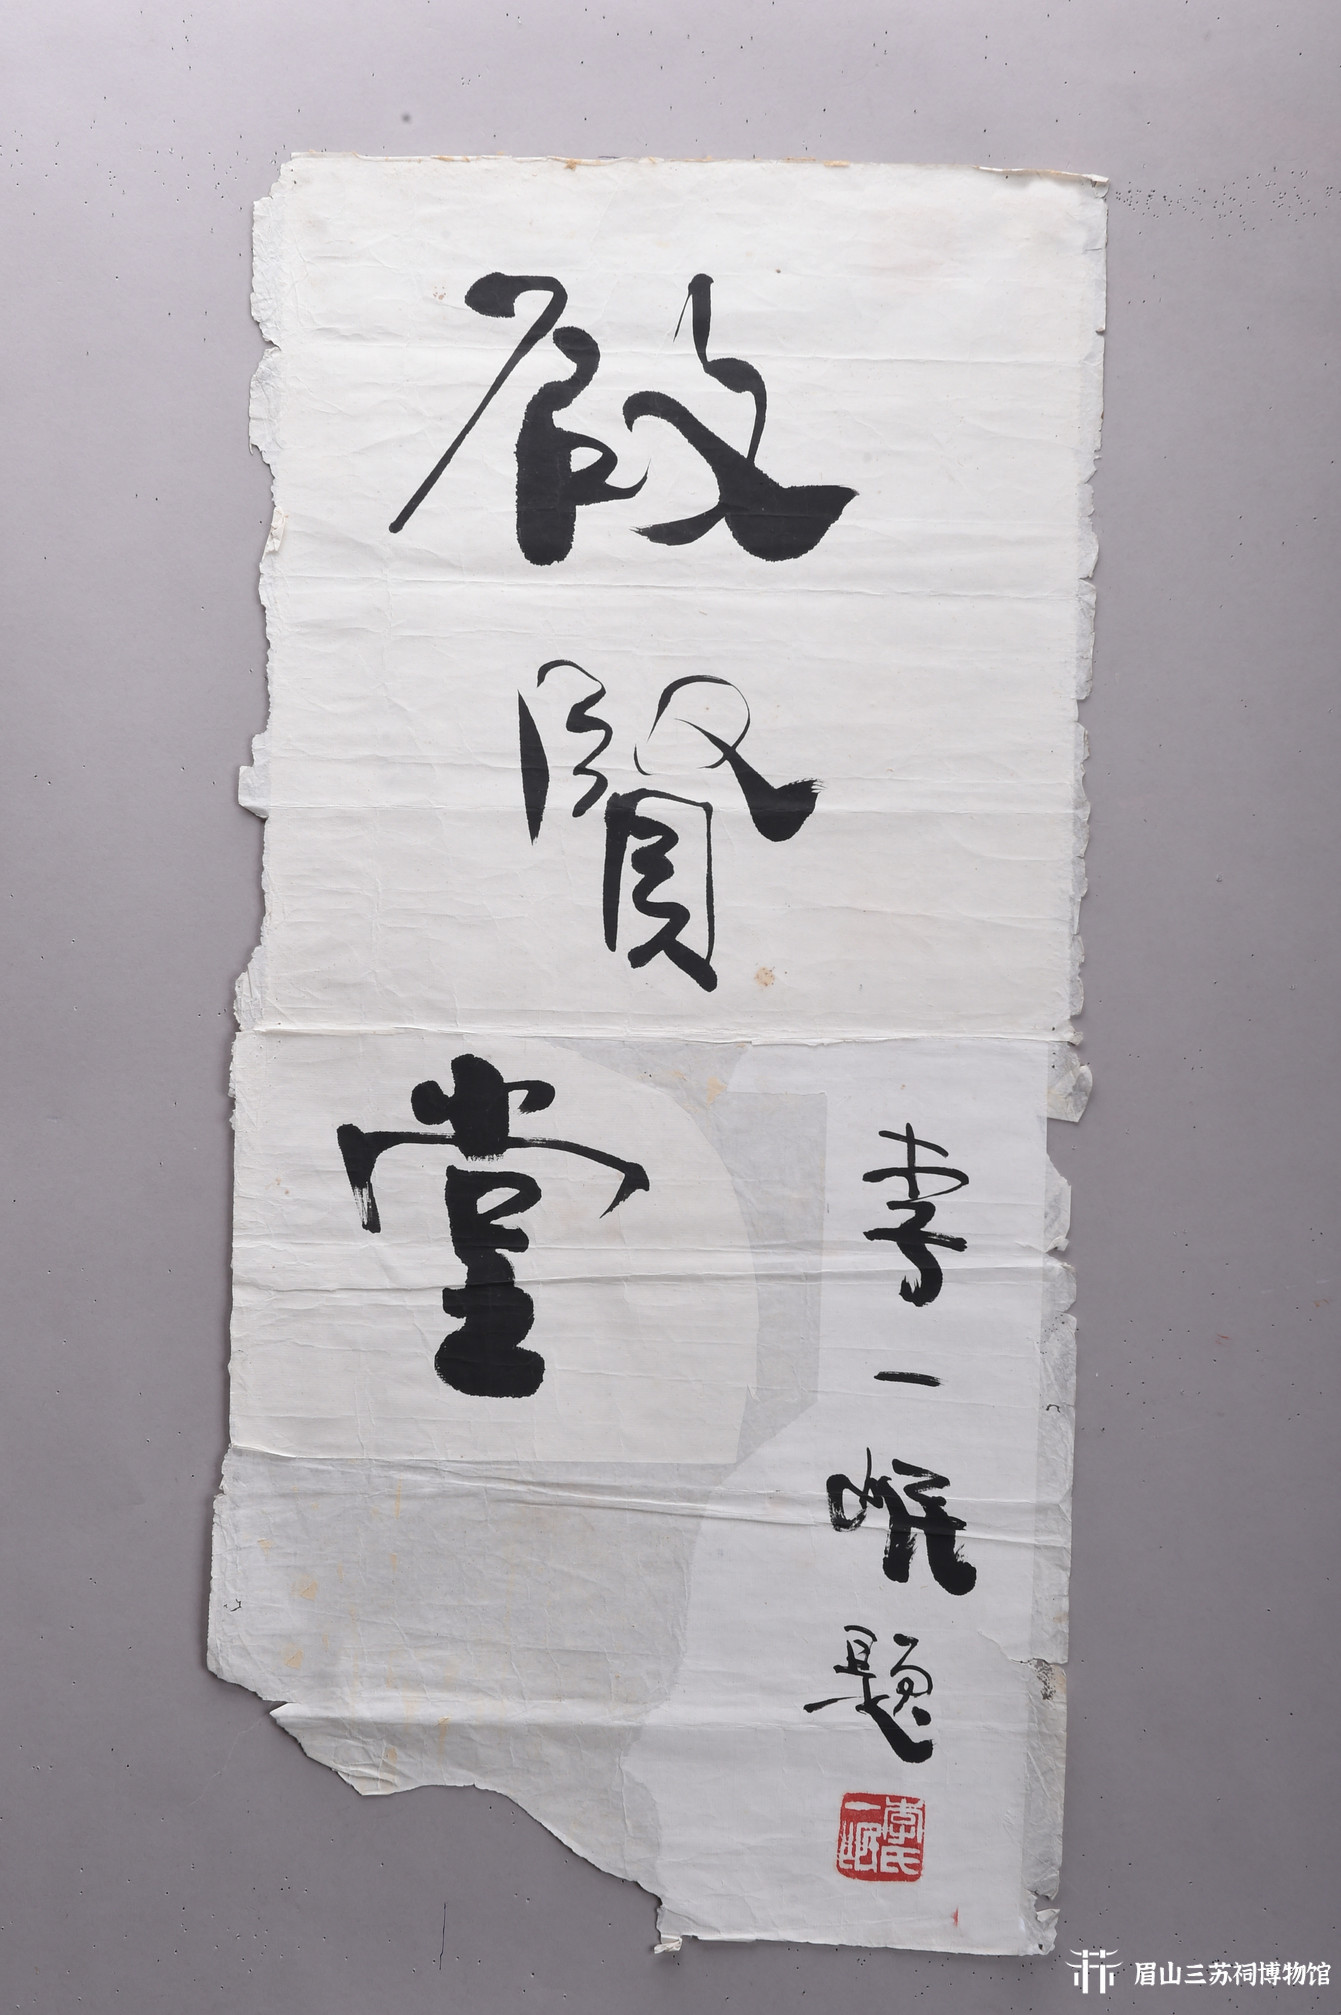 啟賢堂
李一氓題
李氏一氓
眉山三苏祠博物馆